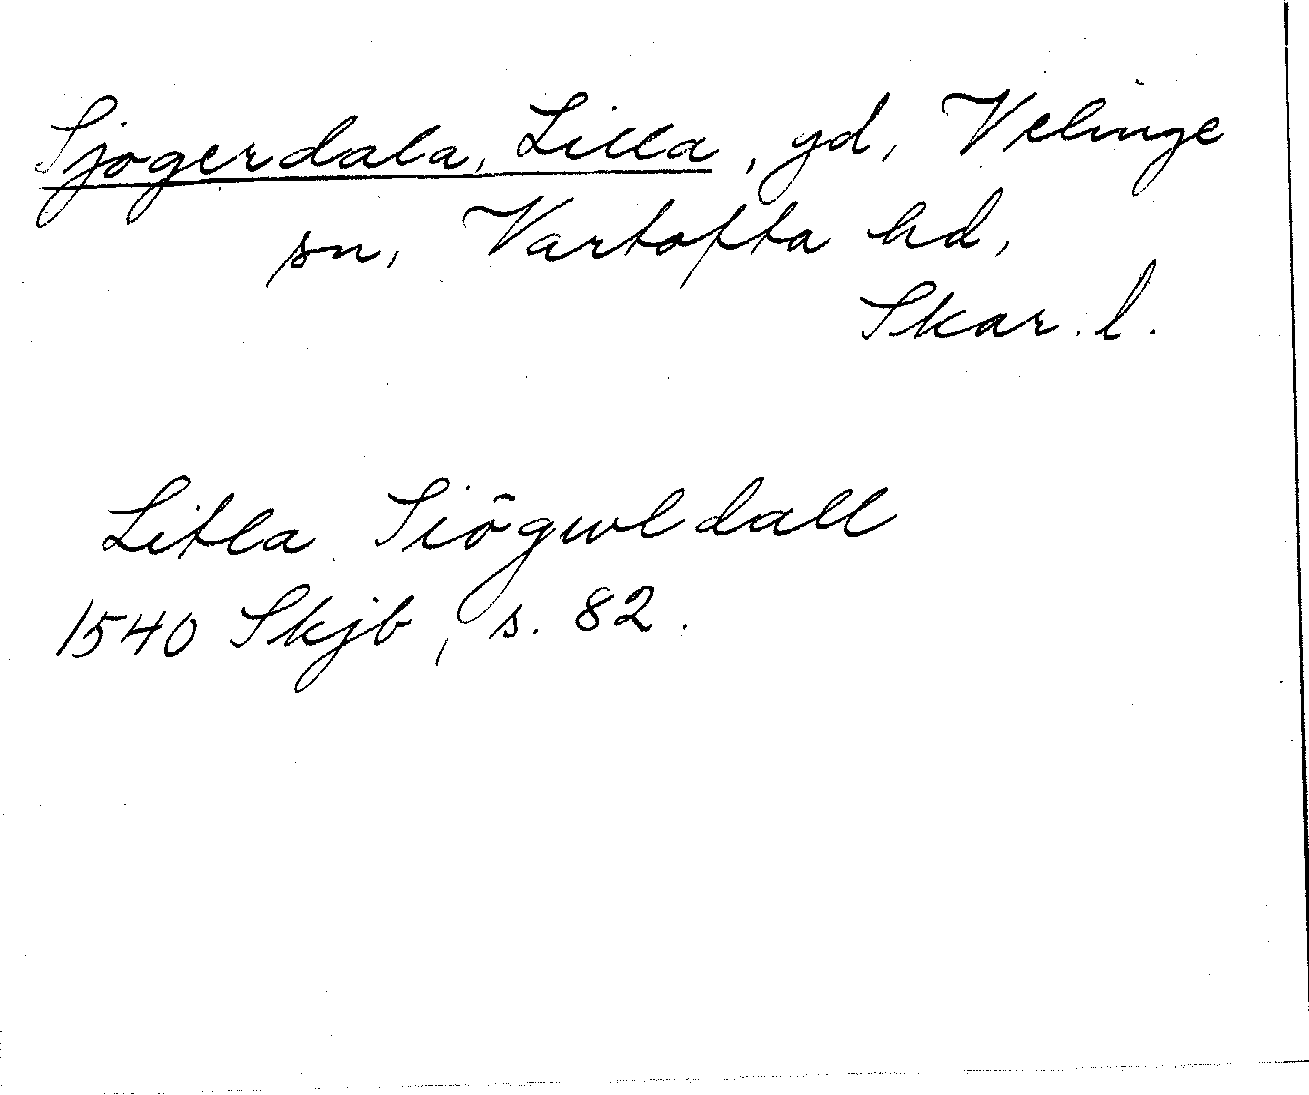 Sjogerdala, Lilla, gd, Velinge
sn, Vartofta hd,
Skar. l.
Litla Siögwldall
1540 Skjb, s. 82.